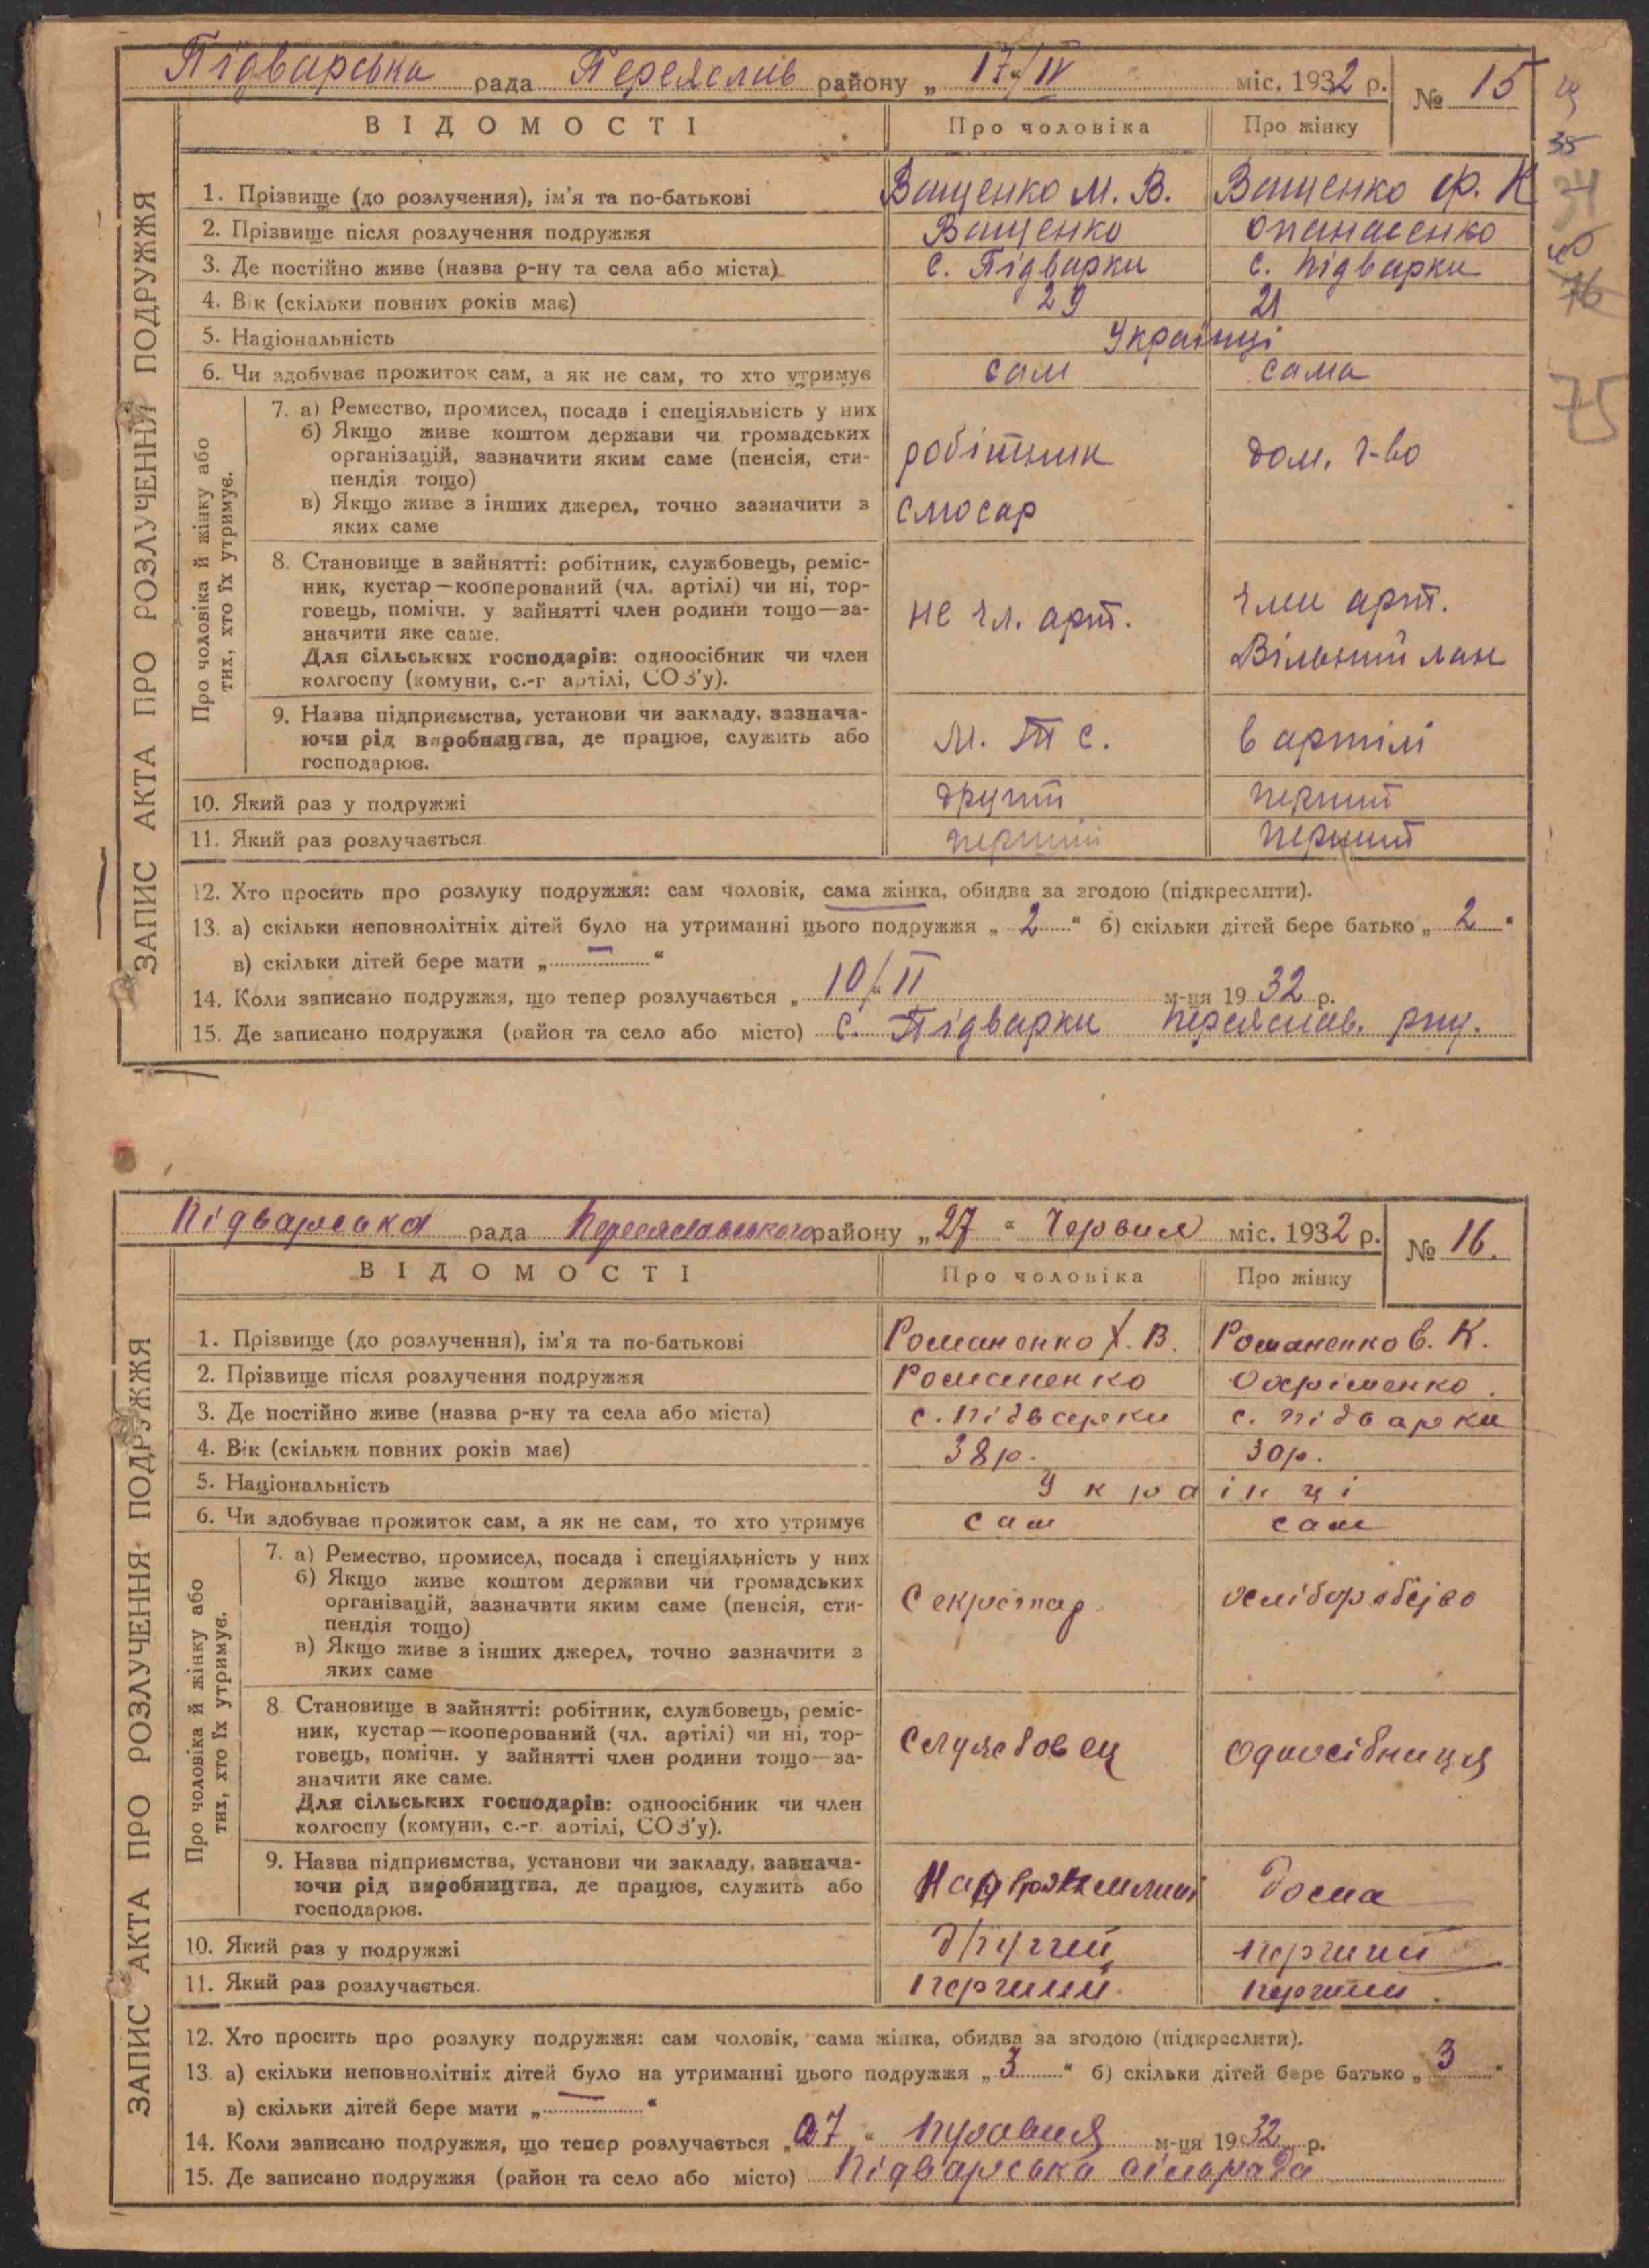 Підварська рада Переяслів району „ 17/IV міс. 1932 р.
№ 15
ВІДОМОСТІ Про чоловіка Про жінку
35
34
76
75
ЗАПИС АКТА ПРО РОЗЛУЧЕННЯ ПОДРУЖЖЯ
1. Прізвище (до розлучення), ім'я та по-батькові Ващенко М. В. Ващенко Ф. К
2. Прізвище після розлучення подружжя Ващенко Опанасенко
3. Де постійно живе (назва р-ну та села або міста) с. Підварки с. Підварки
4. Вік (скільки повних років має) 29 21
5. Національність Українці
6. Чи здобуває прожиток сам, а як не сам, то хто утримує сам сама
Про чоловіка й жінку або
тих, хто їх утримує.
7. а) Ремество, промисел, посада і спеціяльність у них
б) Якщо живе коштом держави чи громадських
організацій, зазначити яким саме (пенсія, сти-
пендія тощо)
в) Якщо живе з інших джерел, точно зазначити з
яких саме
робітник
слюсар
дом. г-во
8. Становище в зайнятті: робітник, службовець, реміс-
ник, кустар—кооперований (чл. артілі) чи ні, тор-
говець, помічн. у зайнятті член родини тощо—за-
значити яке саме.
Для сільських господарів: одноосібник чи член
колгоспу (комуни, с.-г артілі, СОЗ'у).
не чл. арт.
член арт.
Вільний лан
9. Назва підприємства, установи чи закладу, зазнача-
ючи рід виробництва, де працює, служить або
господарює.
М. Т С.
в артілі
10. Який раз у подружжі другий перший
11. Який раз розлучається перший перший
12. Хто просить про розлуку подружжя: сам чоловік, сама жінка, обидва за згодою (підкреслити).
13. а) скільки неповнолітніх дітей було на утриманні цього подружжя „ 2 “ б) скільки дітей бере батько „ 2 “
в) скільки дітей бере мати „ — “
14. Коли записано подружжя, що тепер розлучається „ 10/II м-ця 19 32 р.
15. Де записано подружжя (район та село або місто) с. Підварки Переяслав. рну.
Підварська рада Переяславського району „ 27 “ Червня міс. 1932 р.
№ 16.
ВІДОМОСТІ Про чоловіка Про жінку
ЗАПИС АКТА ПРО РОЗЛУЧЕННЯ ПОДРУЖЖЯ
1. Прізвище (до розлучення), ім'я та по-батькові Романенко Х. В. Романенко Є. К.
2. Прізвище після розлучення подружжя Романенко Охріменко.
3. Де постійно живе (назва р-ну та села або міста) с. Підварки с. Підварки
4. Вік (скільки повних років має) 38 р. 30 р.
5. Національність Українці
6. Чи здобуває прожиток сам, а як не сам, то хто утримує сам сам
Про чоловіка й жінку або
тих, хто їх утримує.
7. а) Ремество, промисел, посада і спеціяльність у них
б) Якщо живе коштом держави чи громадських
організацій, зазначити яким саме (пенсія, сти-
пендія тощо)
в) Якщо живе з інших джерел, точно зазначити з
яких саме
Секретар
8. Становище в зайнятті: робітник, службовець, реміс-
ник, кустар—кооперований (чл. артілі) чи ні, тор-
говець, помічн. у зайнятті член родини тощо—за-
значити яке саме.
Для сільських господарів: одноосібник чи член
колгоспу (комуни, с.-г. артілі, СОЗ'у).
Службовец
одноосібниця
9. Назва підприємства, установи чи закладу, зазнача-
ючи рід виробництва, де працює, служить або
господарює.
Дома
10. Який раз у подружжі другий перший
11. Який раз розлучається перший. перший.
12. Хто просить про розлуку подружжя: сам чоловік, сама жінка, обидва за згодою (підкреслити).
13. а) скільки неповнолітніх дітей було на утриманні цього подружжя „ 3 “ б) скільки дітей бере батько „ 3 “
в) скільки дітей бере мати „ — “
14. Коли записано подружжя, що тепер розлучається „ 27 “ м-ця 19 32 р.
15. Де записано подружжя (район та село або місто) Підварська сільрада